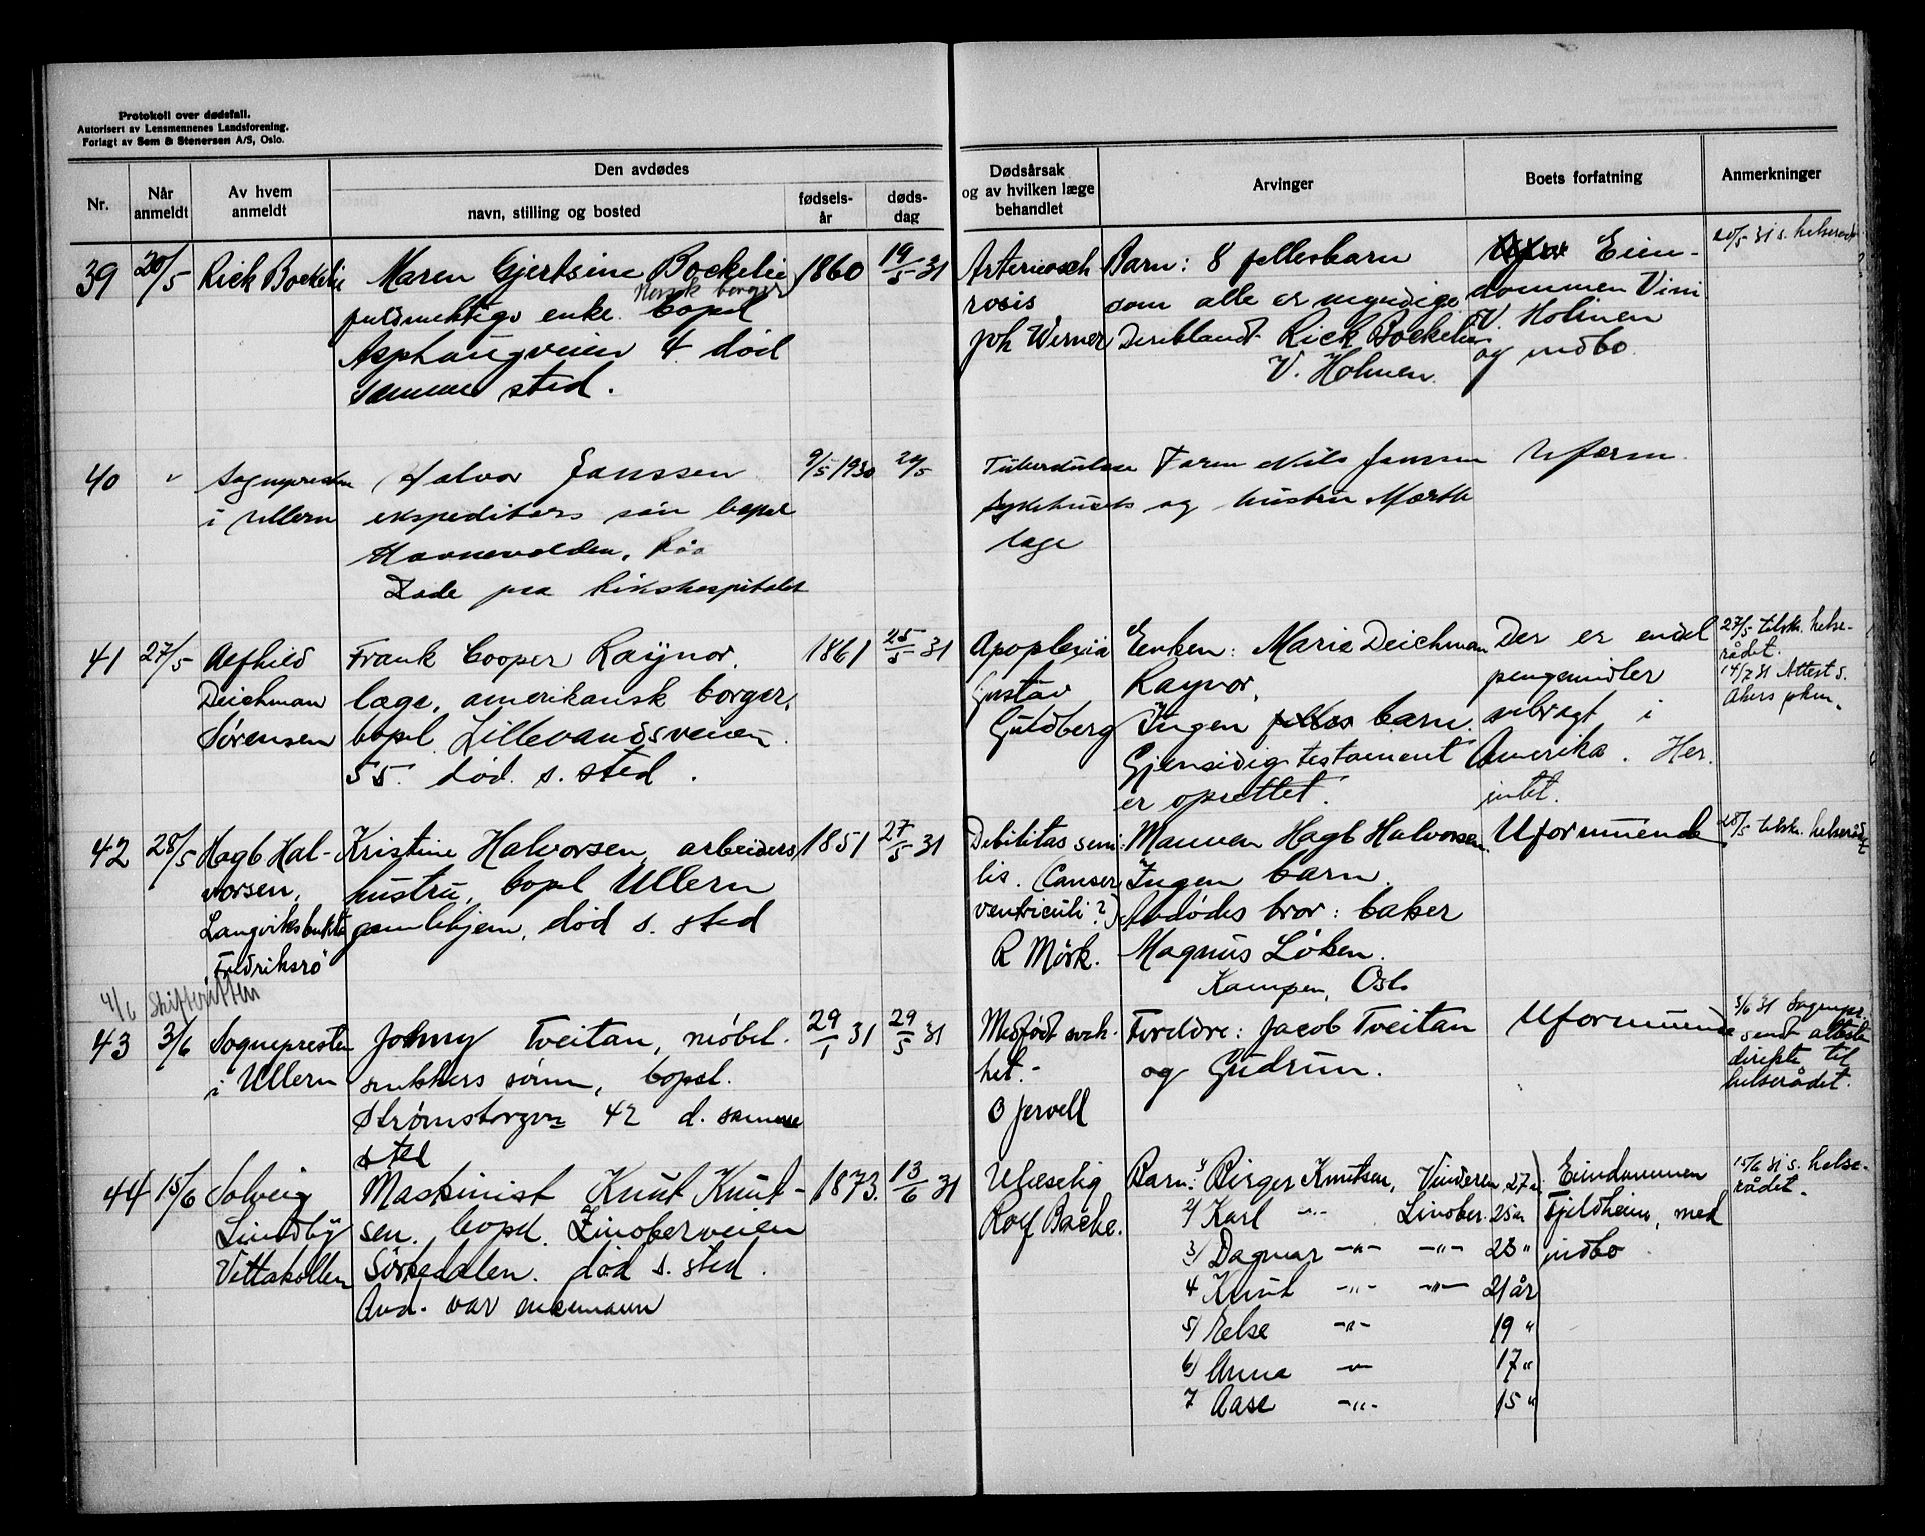 Protokoll over dødsfall.
Autorisert av Lensmennenes Landsforening.
Forlagt av Sem & Stenersen A/S, Oslo.
Nr.
Når anmeldt
Av hvem anmeldt
Den avdødes
navn, stilling og bosted
fødsels-år
døds-dag
Dødsårsak og av hvilken læge behandlet
Arvinger
Boets forfatning
Anmerkninger
39
20/5
Rick Bockelie
Maren Gjertsine Bockelie
Norsk borger
fuldmektigs enke. bopel
Asphaugveien 4. død
samme sted.
1860
19/5 31
Arteriosch
rosis
Joh Werner
Barn: 8 fellesbarn
som alle er myndige
Deriblandt Rick Bockelie
V. Holmen.
Eien-
dommen
V. Holmen
og indbo.
20/5 31 s. helseråd
40
"
Sognepresten
i Ullern
Halvor Janssen
ekspeditørs søn bopel
Røa
Døde paa Rikshospitalet
9/5 1930
20/5
Tuberkulose
sykehusets
læge
Faren Nils Janssen
og hustru Marthe
Uform.
41
27/5
Alfhild
Deichman
Sørensen
Frank Cooper Raynor.
læge, amerikansk borger.
bopel Lillevandsveien
55. død s. sted.
1861
25/5 31
Apoplexia
Gustav
Guldberg
Enken: Marie Deichman
Raynor.
Ingen felles barn.
Gjensidig testament
er oprettet.
Der er endel
pengemidler
anbragt i
Amerika. Her
intet.
27/5 tilsk. helse-
rådet.
14/7 31 Attest s.
Akers
42
28/5
Hagb Hal-
vorsen,
Langviksbukta
Fredriksrø
Kristine Halvorsen, arbeiders
hustru, bopl Ullern
gamlehjem, død s. sted
1851
27/5 31
Debilitas seni-
lis. (Canser
ventriculi?)
R Mörk.
Mannen Hagb Halvorsen
Ingen barn.
Avdødes bror: baker
Magnus Løken.
Kampen, Oslo
Uformuende
28/5 tilsk. helserådet
4/6 Skifteretten
43
3/6
Sognepresten
i Ullern
Johny Tveitan, møbel-
snekkers sønn, bopel.
Strømstangvn 42 d. samme
sted
29/1 31
29/5 31
Medfødt svak-
het.-
O Jervell
Foreldre: Jacob Tveitan
og Gudrun.
Uformuende
3/6 31 Sognepr.
sendt attesten
direkte til
helserådet.
44
15/6
Solveig
Lindby
Vettakollen
Maskinist Knut Knut-
sen. bopel. Zinoberveien
Sørkedalen. død s. sted.
Avd. var enkemann
1873.
13/6 31
Ulæselig
Rolf Bache.
Barn: 1) Birger Knutsen, Vinderen 27 år
2) Karl -"- Zinober. 25 år
3) Dagmar -"- -"- 23 "
4 Knut -"- -"- 21 år
5) Else -"- 19 "
6) Anna -"- 17 "
7 Aase -"- 15 "
Eiendommen
Fjeldheim, med
indbo
15/6 31 s. helse-
rådet.